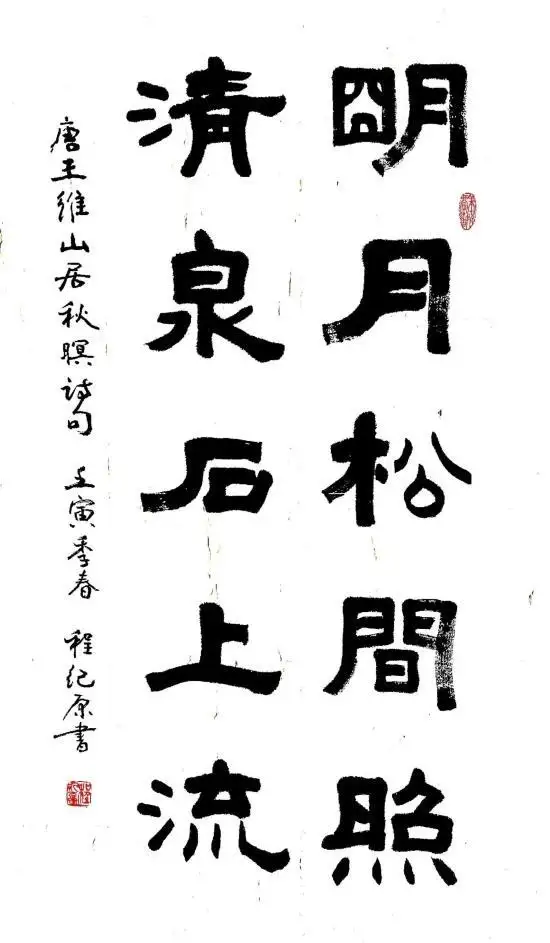 明月松間照
清泉石上流
唐王維山居秋暝詩句 壬寅季春 程纪原書